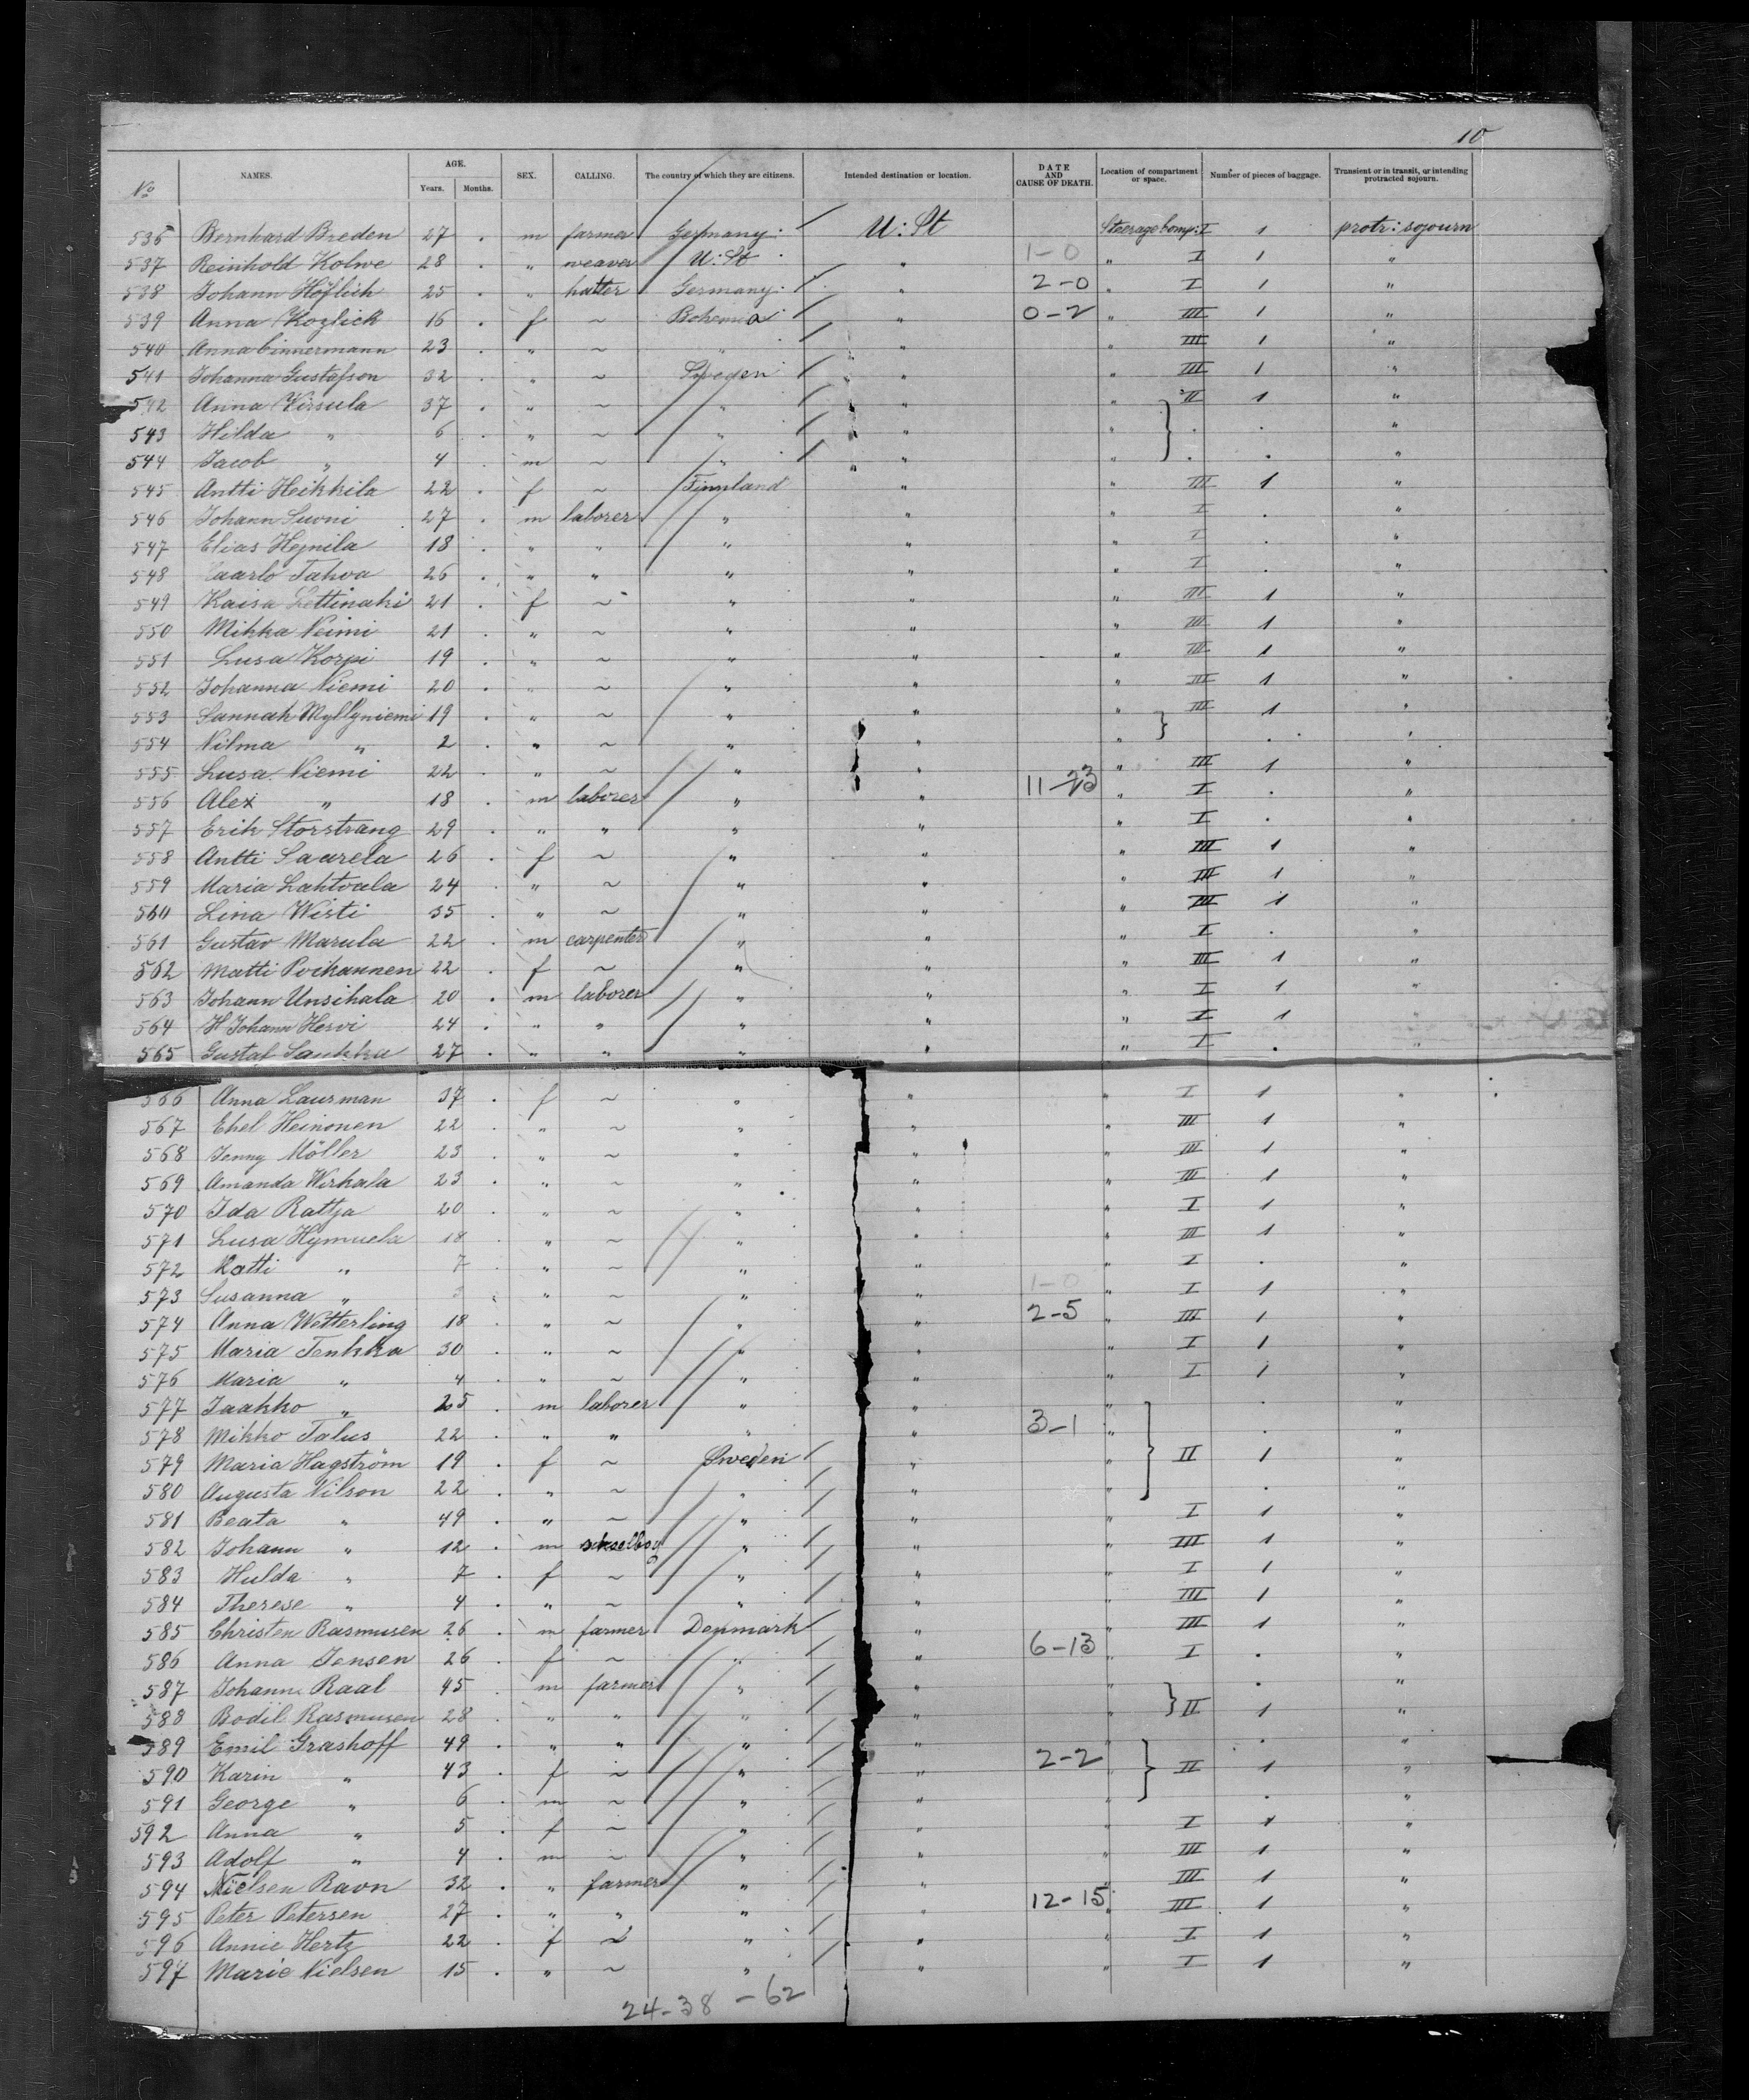 10
No NAMES. AGE. Years. Months. SEX. CALLING. The country of which they are citizens. Intended destination or location. DATE AND CAUSE OF DEATH. Location of compartment or space. Number of pieces of baggage. Transient or in transit, or intending protracted sojourn.
536 Bernhard Breden 27 . m farmer Germany U: St Steerage Comp: I 1 protr: sojourn
537 Reinhold Kolwe 28 . " weaver U: St " 1-0 " I 1 "
538 Johann Höflich 25 . " hatter Germany " 2-0 " I 1 "
539 Anna Kozlick 16 . f ~ Bohemia " 0-2 " III 1 "
540 Anna Cinnermann 23 . " ~ " " " III 1 "
541 Johanna Gustafson 32 . " ~ Sweden " " III 1 "
542 Anna Wirsula 37 . " ~ " " " II 1 "
543 Hilda " 6 . " ~ " " " . . "
544 Jacob " 4 . m ~ " " " . . "
545 Antti Heikkila 22 . f ~ Finnland " " III 1 "
546 Johann Suoni 27 . m laborer " " " I . "
547 Elias Hejnila 18 . " " " " " I . "
548 Kaarlo Tahva 26 . " " " " " I . "
549 Kaisa Lettinaki 21 . f ~ " " " III 1 "
550 Mikka Neimi 21 . " ~ " " " III 1 "
551 Lusa Korpi 19 . " ~ " " " III 1 "
552 Johanna Niemi 20 . " ~ " " " III 1 "
553 Sannah Myllyniemi 19 . " ~ " " " III 1 "
554 Nilma " 2 . " ~ " " " . "
555 Lusa Niemi 22 . " ~ " " " III 1 "
556 Alex " 18 . m laborer " " 11-23 " I . "
557 Erik Storstrang 29 . " " " " " I . "
558 Antti Saarela 26 . f ~ " " " III 1 "
559 Maria Lahtvala 24 . " ~ " " " III 1 "
560 Lina Wisti 35 . " ~ " " " III 1 "
561 Gustav Marula 22 . m carpenter " " " I . "
562 Matti Poihannen 22 . f ~ " " " III 1 "
563 Johann Unsihala 20 . m laborer " " " I 1 "
564 H Johann Hervi 24 . " " " " " I 1 "
565 Gustaf Saukka 27 . " " " " " I . "
566 Anna Laurman 37 . f ~ " " " I 1 "
567 Ehel Heinonen 22 . " ~ " " " III 1 "
568 Jenny Möller 23 . " ~ " " " III 1 "
569 Amanda Wirkala 23 . " ~ " " " III 1 "
570 Ida Rattja 20 . " ~ " " " I 1 "
571 Lusa Hymuela 18 . " ~ " " " III 1 "
572 Matti " 7 . " ~ " " " I . "
573 Susanna " . " ~ " " 1-0 " I 1 "
574 Anna Wetterling 18 . " ~ " " 2-5 " III 1 "
575 Maria Tenkka 30 . " ~ " " " I 1 "
576 Maria " 4 . " ~ " " " I 1 "
577 Jaakko " 25 . m laborer " " " . "
578 Mikko Talus 22 . " " " " 3-1 " . "
579 Maria Hagström 19 . f ~ Sweden " " II 1 "
580 Augusta Nilson 22 . " ~ " " " . "
581 Beata " 49 . " ~ " " " I 1 "
582 Johann " 12 . m " " " III 1 "
583 Hulda " 7 . f ~ " " " I 1 "
584 Therese " 4 . " ~ " " " III 1 "
585 Christen Rasmusen 26 . m farmer Denmark " " III 1 "
586 Anna Jensen 26 . f ~ " " 6-13 " I . "
587 Johann Raal 45 . m farmer " " " . "
588 Bodil Rasmusen 28 . " " " " " II 1 "
589 Emil Grashoff 49 . " " " " . "
590 Karin " 43 . f ~ " " 2-2 " II 1 "
591 George " 6 . m ~ " " " . "
592 Anna " 5 . f ~ " " " I 1 "
593 Adolf " 4 . m ~ " " " III 1 "
594 Nielsen Ravn 32 . " farmer " " " III 1 "
595 Peter Petersen 27 . " " " " 12-15 " III 1 "
596 Annie Hertz 22 . f ~ " " " I 1 "
597 Marie Nielsen 15 . " ~ " " " I 1 "
24-38-62